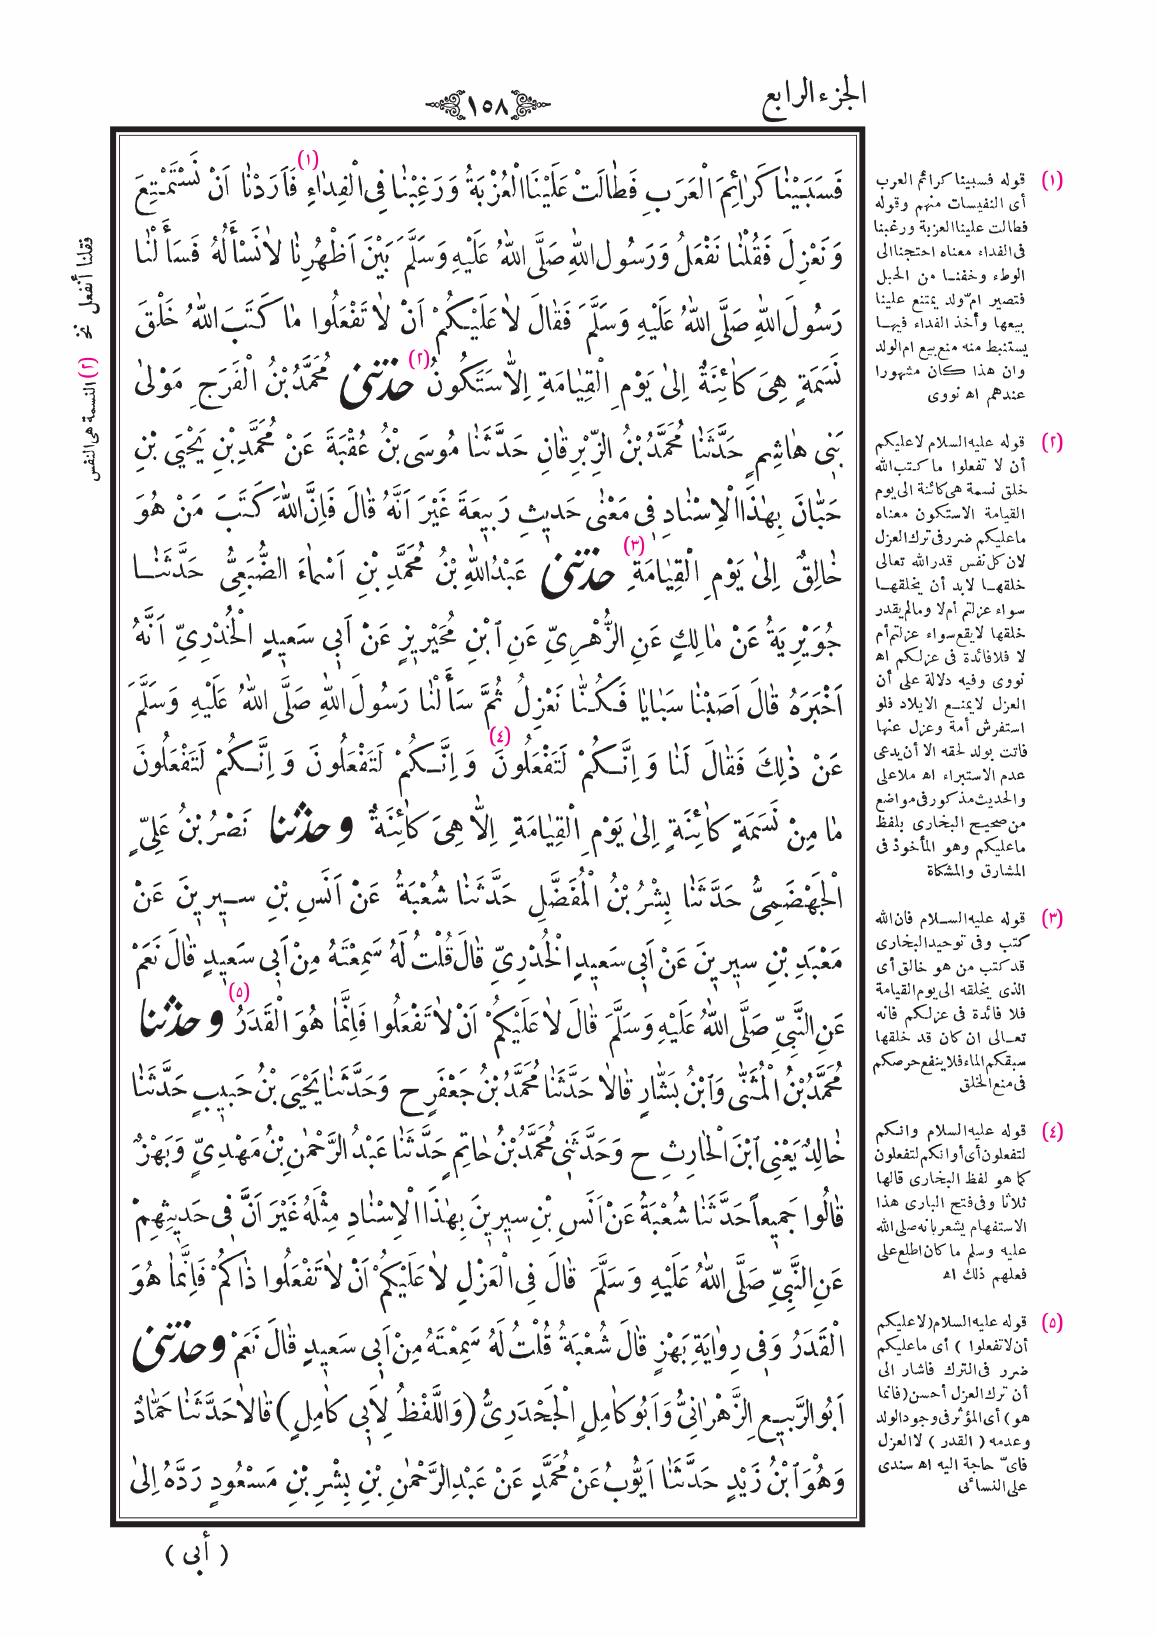 الجزء الرابع
١٥٨
فَسَبَيْنَا كَرَائِمَ الْعَرَبِ فَطَالَتْ عَلَيْنَا الْعُزْبَةُ وَرَغِبْنَا فِى الْفِدَاءِ (١) فَاَرَدْنَا اَنْ نَسْتَمْتِعَ
وَنَعْزِلَ فَقُلْنَا نَفْعَلُ وَرَسُولُ اللهِ صَلَّى اللهُ عَلَيْهِ وَسَلَّمَ بَيْنَ اَظْهُرِنَا لَا نَسْأَلُهُ فَسَأَلْنَا
رَسُولَ اللهِ صَلَّى اللهُ عَلَيْهِ وَسَلَّمَ فَقَالَ لَا عَلَيْكُمْ اَنْ لَا تَفْعَلُوا مَا كَتَبَ اللهُ خَلْقَ
نَسَمَةٍ هِىَ كَائِنَةٌ اِلَى يَوْمِ الْقِيَامَةِ اِلَّا سَتَكُونُ (٢) حَدَّثَنِى مُحَمَّدُ بْنُ الْفَرَجِ مَوْلَى
بَنِى هَاشِمٍ حَدَّثَنَا مُحَمَّدُ بْنُ الزِّبْرِقَانِ حَدَّثَنَا مُوسَى بْنُ عُقْبَةَ عَنْ مُحَمَّدِ بْنِ يَحْيَى بْنِ
حَبَّانَ بِهٰذَا الْاِسْنَادِ فِى مَعْنَى حَدِيثِ رَبِيعَةَ غَيْرَ اَنَّهُ قَالَ فَاِنَّ اللهَ كَتَبَ مَنْ هُوَ
خَالِقٌ اِلَى يَوْمِ الْقِيَامَةِ (٣) حَدَّثَنِى عَبْدُ اللهِ بْنُ مُحَمَّدِ بْنِ اَسْمَاءَ الضُّبَعِىُّ حَدَّثَنَا
جُوَيْرِيَةُ عَنْ مَالِكٍ عَنِ الزُّهْرِىِّ عَنِ ابْنِ مُحَيْرِيزٍ عَنْ اَبِى سَعِيدٍ الْخُدْرِىِّ اَنَّهُ
اَخْبَرَهُ قَالَ اَصَبْنَا سَبَايَا فَكُنَّا نَعْزِلُ ثُمَّ سَأَلْنَا رَسُولَ اللهِ صَلَّى اللهُ عَلَيْهِ وَسَلَّمَ
عَنْ ذٰلِكَ فَقَالَ لَنَا وَاِنَّكُمْ لَتَفْعَلُونَ (٤) وَاِنَّكُمْ لَتَفْعَلُونَ وَاِنَّكُمْ لَتَفْعَلُونَ
مَا مِنْ نَسَمَةٍ كَائِنَةٍ اِلَى يَوْمِ الْقِيَامَةِ اِلَّا هِىَ كَائِنَةٌ وَحَدَّثَنَا نَصْرُ بْنُ عَلِىٍّ
الْجَهْضَمِىُّ حَدَّثَنَا بِشْرُ بْنُ الْمُفَضَّلِ حَدَّثَنَا شُعْبَةُ عَنْ اَنَسِ بْنِ سِيرِينَ عَنْ
مَعْبَدِ بْنِ سِيرِينَ عَنْ اَبِى سَعِيدٍ الْخُدْرِىِّ قَالَ قُلْتُ لَهُ سَمِعْتَهُ مِنْ اَبِى سَعِيدٍ قَالَ نَعَمْ
عَنِ النَّبِىِّ صَلَّى اللهُ عَلَيْهِ وَسَلَّمَ قَالَ لَا عَلَيْكُمْ اَنْ لَا تَفْعَلُوا فَاِنَّمَا هُوَ الْقَدَرُ (٥) وَحَدَّثَنَا
مُحَمَّدُ بْنُ الْمُثَنَّى وَابْنُ بَشَّارٍ قَالَا حَدَّثَنَا مُحَمَّدُ بْنُ جَعْفَرٍ ح وَحَدَّثَنَا يَحْيَى بْنُ حَبِيبٍ حَدَّثَنَا
خَالِدٌ يَعْنِى ابْنَ الْحَارِثِ ح وَحَدَّثَنِى مُحَمَّدُ بْنُ حَاتِمٍ حَدَّثَنَا عَبْدُ الرَّحْمٰنِ بْنُ مَهْدِىٍّ وَبَهْزٌ
قَالُوا جَمِيعاً حَدَّثَنَا شُعْبَةُ عَنْ اَنَسِ بْنِ سِيرِينَ بِهٰذَا الْاِسْنَادِ مِثْلَهُ غَيْرَ اَنَّ فِى حَدِيثِهِمْ
عَنِ النَّبِىِّ صَلَّى اللهُ عَلَيْهِ وَسَلَّمَ قَالَ فِى الْعَزْلِ لَا عَلَيْكُمْ اَنْ لَا تَفْعَلُوا ذَاكُمْ فَاِنَّمَا هُوَ
الْقَدَرُ وَفِى رِوَايَةِ بَهْزٍ قَالَ شُعْبَةُ قُلْتُ لَهُ سَمِعْتَهُ مِنْ اَبِى سَعِيدٍ قَالَ نَعَمْ وَحَدَّثَنِى
اَبُو الرَّبِيعِ الزَّهْرَانِىُّ وَاَبُو كَامِلٍ الْجَحْدَرِىُّ (وَاللَّفْظُ لِاَبِى كَامِلٍ) قَالَا حَدَّثَنَا حَمَّادٌ
وَهُوَ ابْنُ زَيْدٍ حَدَّثَنَا اَيُّوبُ عَنْ مُحَمَّدٍ عَنْ عَبْدِ الرَّحْمٰنِ بْنِ بِشْرِ بْنِ مَسْعُودٍ رَدَّهُ اِلَى
( أبى )
(١) قوله فسبينا كرائم العرب
أى النفيسات منهم وقوله
فطالت علينا العزبة ورغبنا
فى الفداء معناه احتجنا الى
الوطء وخفنا من الحبل
فتصير امّ ولد يمتنع علينا
بيعها وأخذ الفداء فيها
يستنبط منه منع بيع ام الولد
وان هذا كان مشهورا
عندهم اه نووى
(٢) قوله عليه السلام لا عليكم
أن لا تفعلوا ما كتب الله
خلق نسمة هى كائنة الى يوم
القيامة الا ستكون معناه
ما عليكم ضرر فى ترك العزل
لان كل نفس قدر الله تعالى
خلقها لابد أن يخلقها
سواء عزلتم أم لا وما لم يقدر
خلقها لا يقع سواء عزلتم أم
لا فلا فائدة فى عزلكم اه
نووى وفيه دلالة على أن
العزل لا يمنع الايلاد فلو
استفرش أمة وعزل عنها
فاتت بولد لحقه الا أن يدعى
عدم الاستبراء اه ملا على
والحديث مذكور فى مواضع
من صحيح البخارى بلفظ
ما عليكم وهو المأخوذ فى
المشارق والمشكاة
(٣) قوله عليه السلام فان الله
كتب وفى توحيد البخارى
قد كتب من هو خالق أى
الذى يخلقه الى يوم القيامة
فلا فائدة فى عزلكم فانه
تعالى ان كان قد خلقها
سبقكم الماء فلا ينفع حرصكم
فى منع الخلق
(٤) قوله عليه السلام وانكم
لتفعلون أى أوانكم لتفعلون
كما هو لفظ البخارى قالها
ثلاثا وفى فتح البارى هذا
الاستفهام يشعر بانه صلى الله
عليه وسلم ما كان اطلع على
فعلهم ذلك اه
(٥) قوله عليه السلام (لا عليكم
أن لا تفعلوا ) أى ما عليكم
ضرر فى الترك فاشار الى
أن ترك العزل أحسن (فانما
هو) أى المؤثر فى وجود الولد
وعدمه ( القدر ) لا العزل
فاىّ حاجة اليه اه سندى
على النسائى
فقلنا أنفعل نخ
(٢) النسمة هى النفس